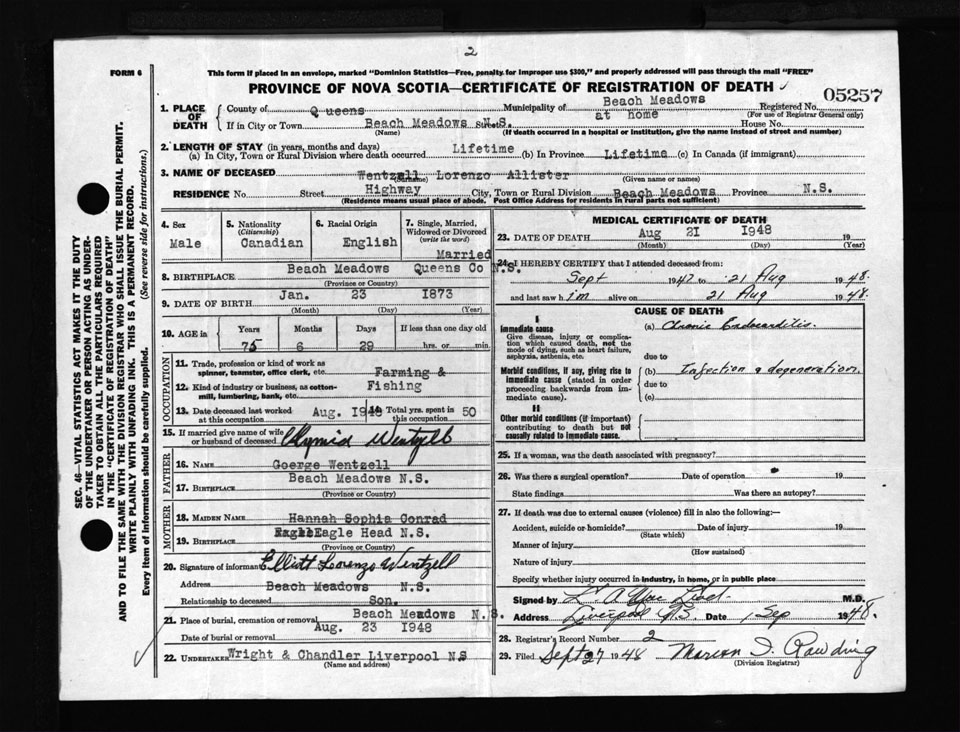 2
FORM 6
This form if placed in an envelope, marked "Dominion Statistics—Free, penalty for improper use $300," and properly addressed will pass through the mail "FREE"
PROVINCE OF NOVA SCOTIA—CERTIFICATE OF REGISTRATION OF DEATH
05257
1. PLACE OF DEATH { County of Queens Municipality of Beach Meadows Registered No.
(For use of Registrar General only)
If in City or Town Beach Meadows N.S. Street at home House No.
(Name) (If death occurred in a hospital or institution, give the name instead of street and number)
2. LENGTH OF STAY (in years, months and days)
(a) In City, Town or Rural Division where death occurred Lifetime (b) In Province Lifetime (c) In Canada (if immigrant)
3. NAME OF DECEASED Wentzell Lorenzo Allister
(Surname) (Given name or names)
RESIDENCE No. Street Highway City, Town or Rural Division Beach Meadows Province N.S.
(Residence means usual place of abode. Post Office Address for residents in rural parts not sufficient)
4. Sex Male
5. Nationality (Citizenship) Canadian
6. Racial Origin English
7. Single, Married, Widowed or Divorced (write the word) Married
8. BIRTHPLACE Beach Meadows Queens Co N.S.
(Province or Country)
9. DATE OF BIRTH Jan. 23 1873
(Month) (Day) (Year)
10. AGE in { Years Months Days If less than one day old
75 6 29 hrs. or min.
OCCUPATION
11. Trade, profession or kind of work as spinner, teamster, office clerk, etc. Farming &
12. Kind of industry or business, as cotton-mill, lumbering, bank, etc. Fishing
13. Date deceased last worked at this occupation Aug. 1948 14. Total yrs. spent in this occupation 50
15. If married give name of wife or husband of deceased Wentzell
FATHER
16. NAME Goerge Wentzell
17. BIRTHPLACE Beach Meadows N.S.
(Province or Country)
MOTHER
18. MAIDEN NAME Hannah Sophia Conrad
19. BIRTHPLACE Eagle Head N.S.
(Province or Country)
20. Signature of informant Elliott Lorenzo Wentzell
Address Beach Meadows N.S.
Relationship to deceased Son.
21. Place of burial, cremation or removal Beach Meadows N.S.
Date of burial or removal Aug. 23 1948
22. UNDERTAKER Wright & Chandler Liverpool NS
(Name and address)
MEDICAL CERTIFICATE OF DEATH
23. DATE OF DEATH Aug 21 1948 19
(Month) (Day) (Year)
24. I HEREBY CERTIFY that I attended deceased from:
Sept 1947 to 21 Aug 1948.
and last saw him alive on 21 Aug 1948.
CAUSE OF DEATH
I
Immediate cause (a) Chronic Endocarditis.
Give disease, injury or complication which caused death, not the mode of dying, such as heart failure, asphyxia, asthenia, etc.
due to
Morbid conditions, if any, giving rise to immediate cause (stated in order proceeding backwards from immediate cause).
(b) Infection & degeneration.
due to
(c)
II
Other morbid conditions (if important) contributing to death but not causally related to immediate cause.
25. If a woman, was the death associated with pregnancy?
26. Was there a surgical operation? Date of operation 19
State findings Was there an autopsy?
27. If death was due to external causes (violence) fill in also the following:—
Accident, suicide or homicide? Date of injury 19
(State which)
Manner of injury
(How sustained)
Nature of injury
Specify whether injury occurred in industry, in home, or in public place
Signed by M.D.
Address Liverpool N.S. Date Sep 1948.
28. Registrar's Record Number 2
29. Filed Sept 27 1948 Marion I. Rawding
(Division Registrar)
SEC. 46—VITAL STATISTICS ACT MAKES IT THE DUTY
OF THE UNDERTAKER OR PERSON ACTING AS UNDER-
TAKER TO OBTAIN ALL THE PARTICULARS REQUIRED
IN THE "CERTIFICATE OF REGISTRATION OF DEATH"
AND TO FILE THE SAME WITH THE DIVISION REGISTRAR WHO SHALL ISSUE THE BURIAL PERMIT.
WRITE PLAINLY WITH UNFADING INK. THIS IS A PERMANENT RECORD.
Every item of information should be carefully supplied. (See reverse side for instructions.)